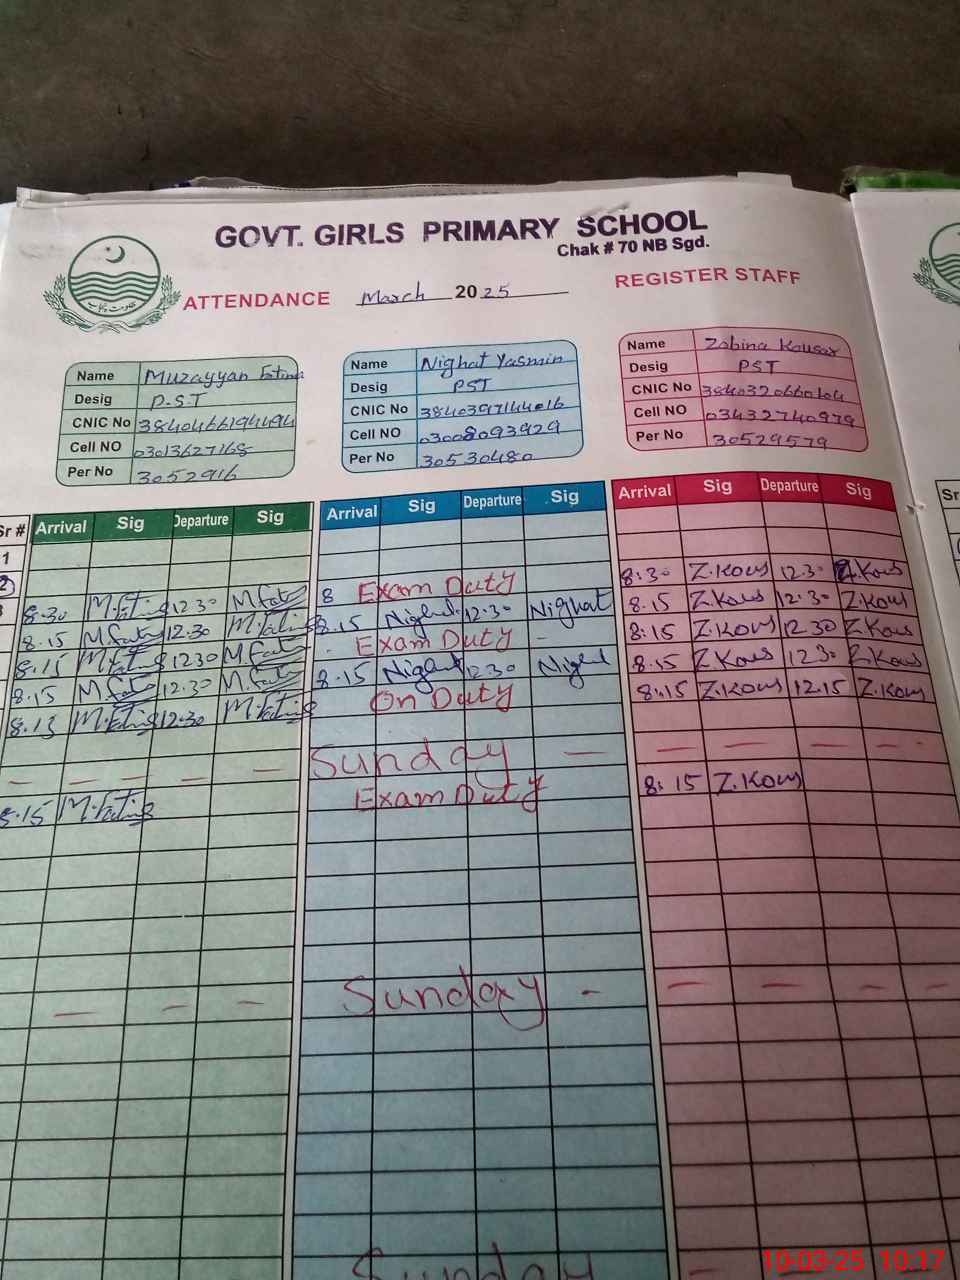 GOVT. GIRLS PRIMARY SCHOOL
Chak # 70 NB Sgd.
ATTENDANCE March 2025 REGISTER STAFF
Name Muzayyan Fatima
Desig P.S.T
CNIC No 3840466194494
Cell NO 03013627168
Per No 3052916
Name Nighat Yasmin
Desig PST
CNIC No 3840397144016
Cell NO 03008093929
Per No 30530480
Name Zobina Kousar
Desig PST
CNIC No 3840320660104
Cell NO 03432740979
Per No 30529579
Sr # Arrival Sig Departure Sig Arrival Sig Departure Sig Arrival Sig Departure Sig
1
2 8:30 Z.Kous 12.30 Z.Kous
3 8.30 M.Fatima 12 30 M.Fati 8 Exam Duty 8.15 Z.Kous 12:30 Z.Kous
8.15 M.Fati 12.30 M.Fatima 8.15 Nighat 12.30 Nighat 8:15 Z.Kous 12 30 Z.Kous
8.15 M.Fatima 12 30 M.Fati Exam Duty - 8:15 Z.Kous 12 30 Z.Kous
8.15 M.Fati 12.30 M.Fati 8.15 Nighat 12.30 Nighat 8.15 Z.Kous 12.15 Z.Kous
8.15 M.Fatima 12.30 M.Fatima On Duty
— — — — — Sunday — — — — —
8.15 M.Fatima Exam Duty 8:15 Z.Kous
— — — Sunday - — — — —
Sunday
10-03-25 10:17